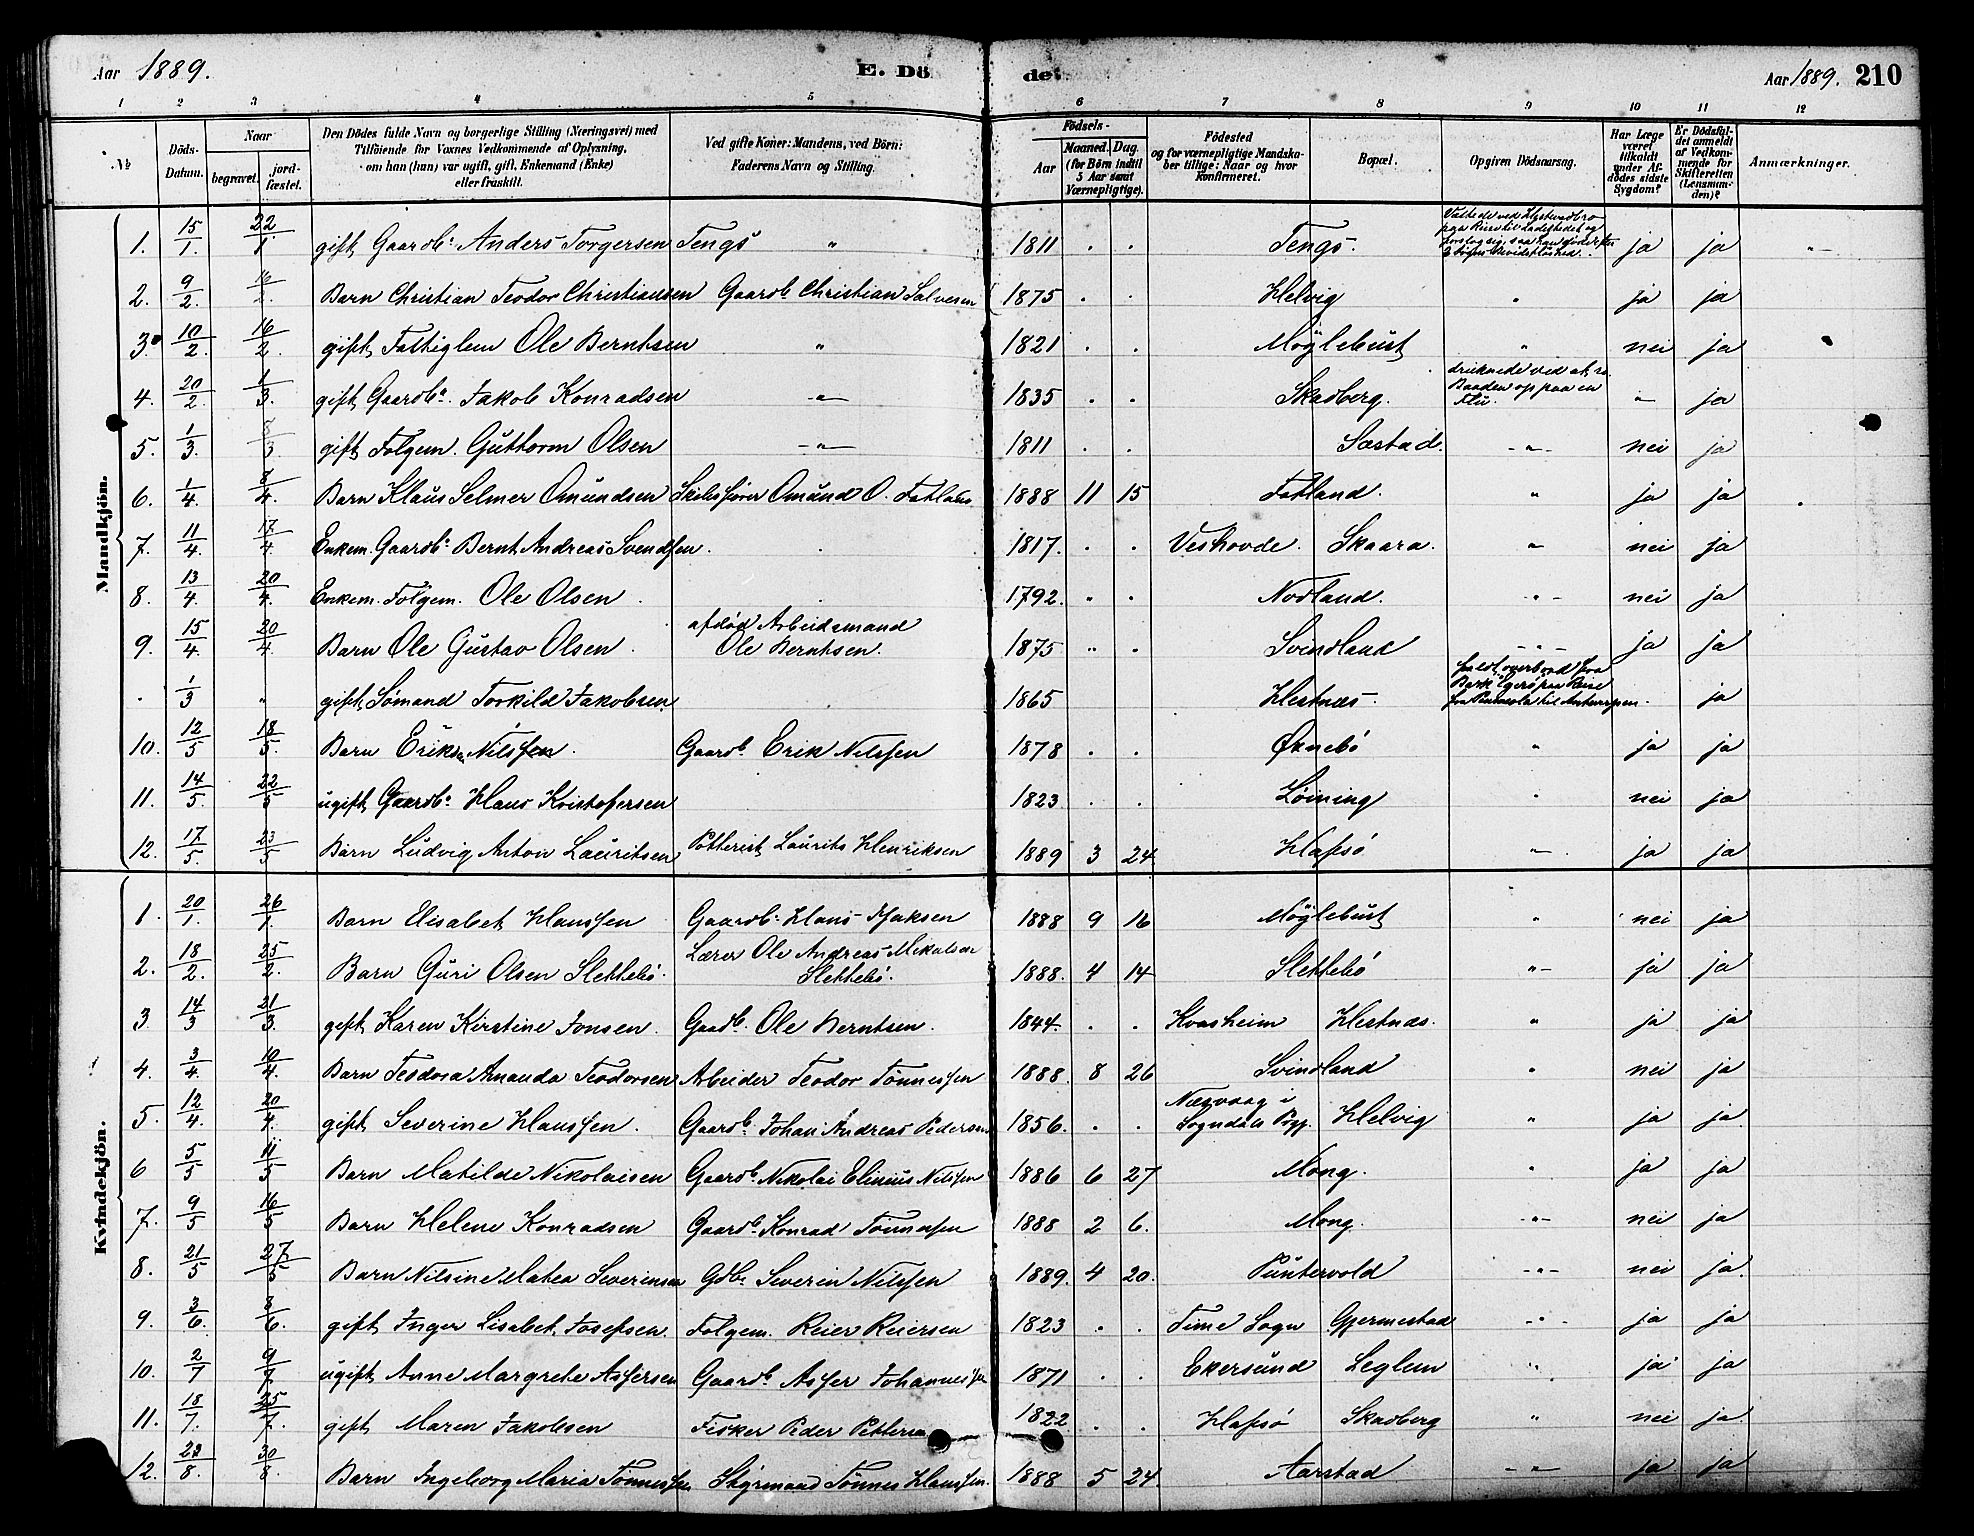 Aar 1889. E. Dö de. Aar 1889. 210
1 2 3 4 5 6 7 8 9 10 11 12
No
Döds-Datum.
Naar
begravet.
jord-fæstet.
Den Dödes fulde Navn og borgerlige Stilling (Næringsvei) med
Tilföiende for Voxnes Vedkommende af Oplysning,
om han (hun) var ugift, gift, Enkemand (Enke)
eller fraskilt.
Ved gifte Koner: Mandens, ved Börn:
Faderens Navn og Stilling.
Födsels-
Aar
Maaned. Dag.
(for Börn indtil
5 Aar samt
Værnepligtige).
Födested
og for værnepligtige Mandska-
ber tillige: Naar og hvor
konfirmeret.
Bopæl.
Opgiven Dödsaarsag.
Har Læge
været
tilkaldt
under Af-
dödes sidste
Sygdom?
Er Dödsfal-
det anmeldt
af Vedkom-
mende for
Skifteretten
(Lensman-
den)?
Anmærkninger.
Mandkjön.
1. 15/1. 22/1. gift Gaardb. Anders Torgersen Tengs " 1811 . . Tengs. ja ja "
2. 9/2. 16/2. Barn Christian Teodor Christiansen Gaardb. Christian Salvesen 1875 . . Helvig " ja ja
3. 10/2. 16/2. gift Fattiglem Ole Berntsen " 1821 . . Möglebust " nei ja
4. 20/2. 1/3. gift Gaardb. Jakob Konradsen " 1835 . . Skadberg. druknede ved at Baaden op paa en Flu. " ja
5. 1/3. 8/3. gift Folgem. Guttorm Olsen " 1811 . . Sæstad. " nei ja
6. 1/4. 8/4. Barn Klaus Selmer Omundsen Skibsfører Omund O. Fatland 1888 11 15 Fatland. " ja ja
7. 11/4. 17/4. Enkem. Gaardb. Bernt Andreas Svendsen. 1817. . . Veshovde. Skaara. " nei ja
8. 13/4. 20/4. Enkem. Folgem. Ole Olsen. 1792. " . Nodland. " nei ja
9. 15/4. 20/4. Barn Ole Gustav Olsen. afdød Arbeidsmand Ole Berntsen. 1875 " . Svindland " ja ja
. 1/3 " gift Sømand Torkild Jakobsen. 1865 Hestnæs. faldt overbord fra Bark paa Reise fra Pensacola til Antwerpen. ja
10. 12/5 18/5. Barn Erik Nilssen. Gaardb. Erik Nilssen 1878 . . Øknebö " ja ja
11. 14/5. 22/5 ugift Gaardb. Hans Kristofersen 1823 . . Löining " nei ja
12. 17/5. 23/5 Barn Ludvig Anton Lauritsen Potterist Laurits Henriksen 1889 3 24 Hafsö " ja ja
Kvindekjön.
1. 20/1. 26/1. Barn Elisabet Hanssen Gaardb. Hans Isaksen 1888 9 16 Möglebust " nei ja
2. 18/2. 25/2. Barn Guri Olsen Slettebö. Lærer Ole Andreas Mikalsen Slettebö. 1888. 4 14 Slettebö " ja ja
3 14/3 21/3. gift Karen Kirstine Jonsen. Gaadb. Ole Berntsen. 1844. . . Kvasheim Hestnæs. " ja ja
4. 3/4. 10/4. Barn Teodora Amanda Teodorsen Arbeider Teodor Tönnessen 1888. 8 26 Svindland " nei ja
5. 12/4. 20/4. gift Severine Hanssen. Gaardb. Johan Andreas Pedersen 1856. . . i Sogndals Pgj. Helvig " ja ja
6 5/5 11/5 Barn Matilde Nikolaisen Gaardb. Nikolai Elinius Nilssen 1886 6 27 Mong. " ja ja
7. 9/5 16/5 Barn Helene Konradsen Gaardb. Konrad Tönnessen 1888 2 6. Mong. " nei ja
8. 21/5 27/5 Barn Nilsine Matea Severinsen Gdb. Severin Nilssen 1889. 4 20. Puntervold " nei ja.
9. 3/6 8/6. gift Inger Lisabet Josefsen. Folgem. Reier Reiersen 1823 . . Time Sogn Gjermestad " ja ja
10. 2/7 9/7 ugift Anne Margrete Assersen Gaardb. Asser Johannessen 1871 . . Ekersund Leglem " ja ja
11. 18/7. 25/7. gift Maren Jakobsen Fisker Peder Pettersen 1822 . . Hafsö Skadberg " nei ja.
12. 22/8. 30/8. Barn Ingeborg Maria Tönnessen Styrmand Tönnes Hanssen. 1888 5 24. Aarstad " ja ja